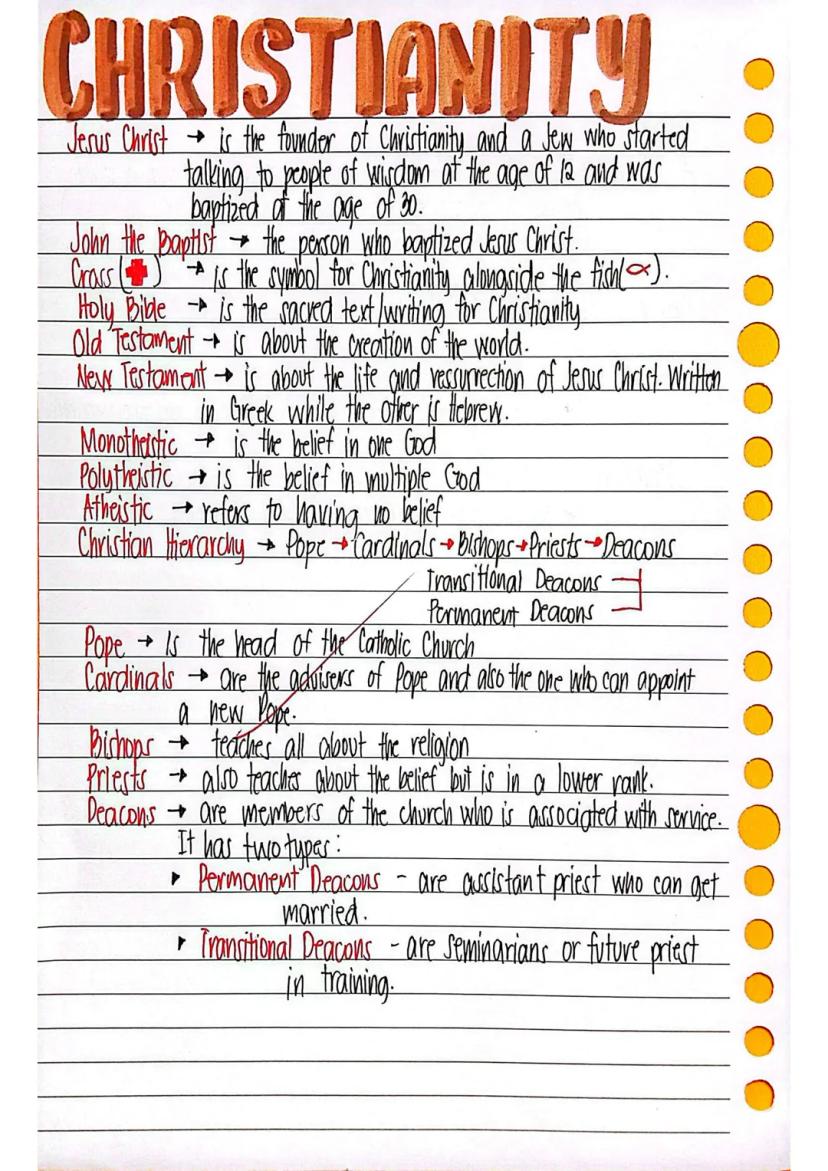 CHRISTIANITY
Jesus Christ → is the founder of Christianity and a Jew who started
talking to people of wisdom at the age of 12 and was
baptized at the age of 30.
John the Baptist → the person who baptized Jesus Christ.
Cross (✚) → is the symbol for Christianity alongside the fish( ).
Holy Bible → is the sacred text/writing for Christianity
Old Testament → is about the creation of the world.
New Testament → is about the life and ressurrection of Jesus Christ. Written
in Greek while the other is Hebrew.
Monotheistic → is the belief in one God
Polytheistic → is the belief in multiple God
Atheistic → refers to having no belief
Christian Hierarchy → Pope → Cardinals → Bishops → Priests → Deacons
Transitional Deacons
Permanent Deacons
Pope → Is the head of the Catholic Church
Cardinals → are the advisers of Pope and also the one who can appoint
a new Pope.
Bishops → teaches all about the religion
Priests → also teaches about the belief but is in a lower rank.
Deacons → are members of the church who is associated with service.
It has two types:
▸ Permanent Deacons - are assistant priest who can get
married.
▸ Transitional Deacons - are seminarians or future priest
in training.